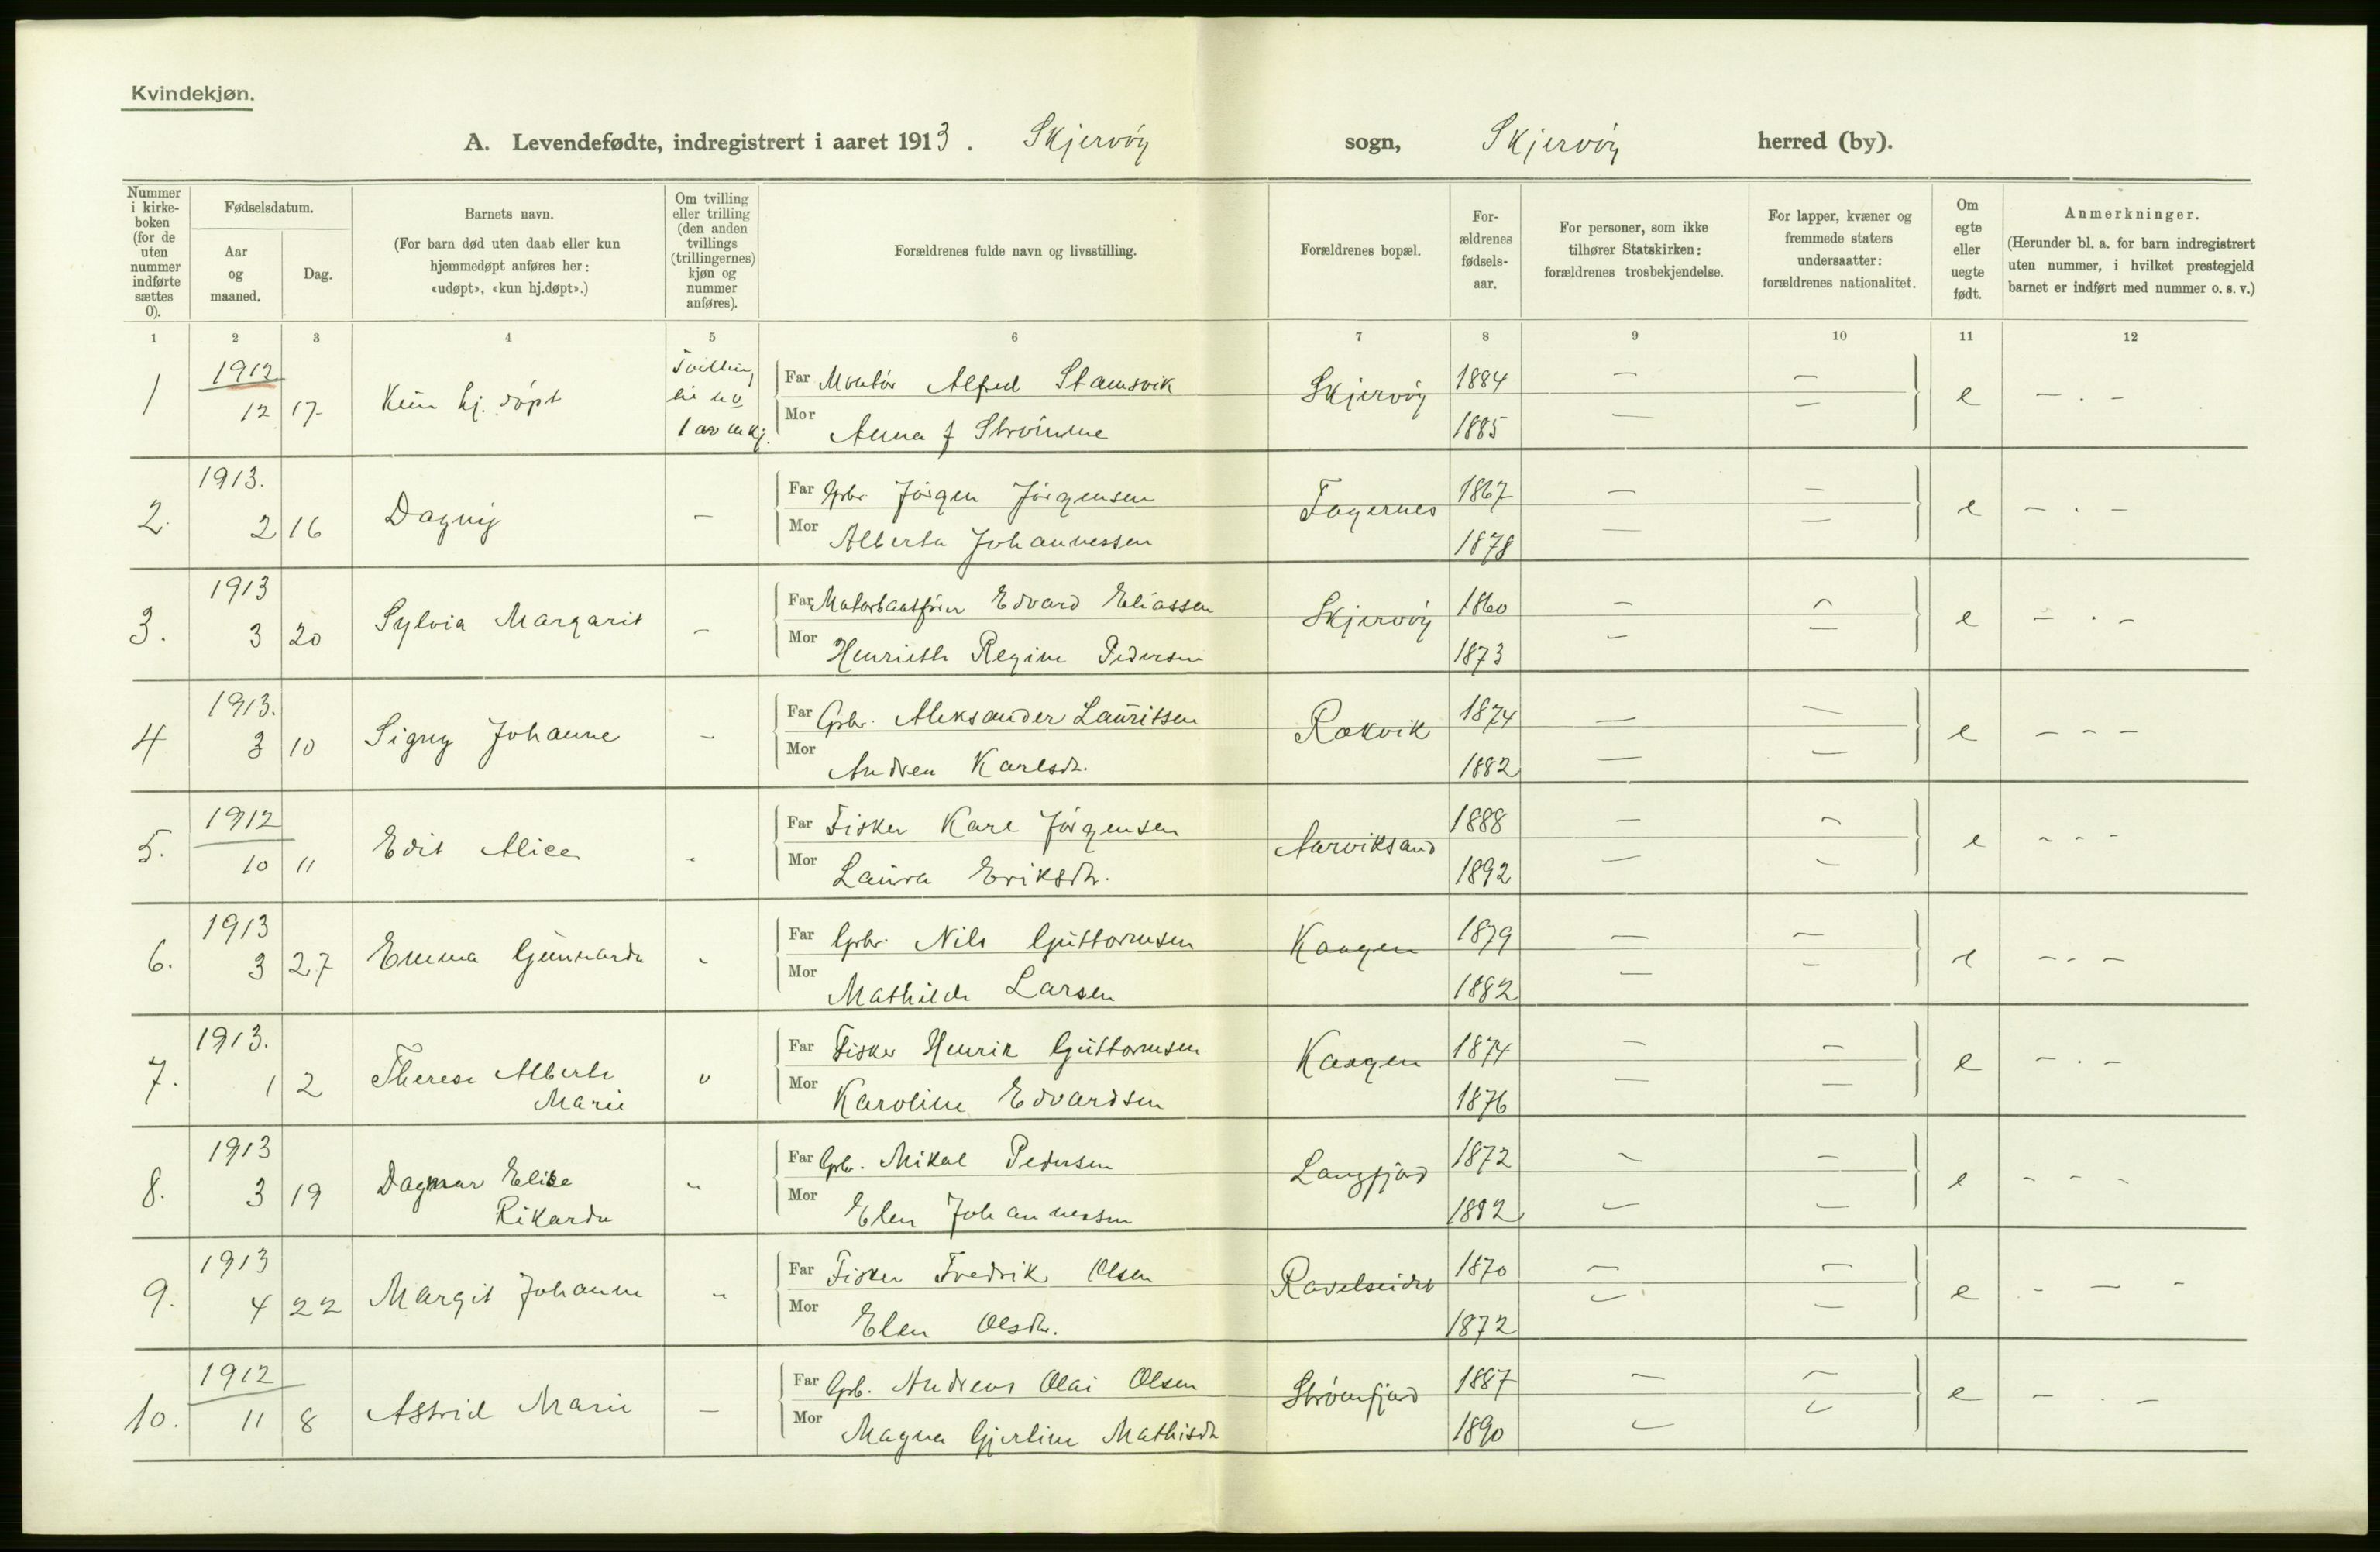 Kvindekjøn.
A. Levendefødte, indregistrert i aaret 1913. Skjervöy sogn, Skjervöy herred (by).
Nummer i kirke-boken (for de uten nummer indførte sættes 0).
Fødselsdatum.
Aar og maaned.
Dag.
Barnets navn.
(For barn død uten daab eller kun hjemmedøpt anføres her: «udøpt», «kun hj.døpt».)
Om tvilling eller trilling (den anden tvillings (trillingernes) kjøn og nummer anføres).
Forældrenes fulde navn og livsstilling.
Forældrenes bopæl.
For-ældrenes fødsels-aar.
For personer, som ikke tilhører Statskirken: forældrenes trosbekjendelse.
For lapper, kvæner og fremmede staters undersaatter: forældrenes nationalitet.
Om egte eller uegte født.
Anmerkninger.
(Herunder bl. a. for barn indregistrert uten nummer, i hvilket prestegjeld barnet er indført med nummer o. s. v.)
1 2 3 4 5 6 7 8 9 10 11 12
1 1912 12 17 Kun hj. döpt Tvilling til no 1 av mkj. Far Montör Alfred Stamsvik Skjervöy 1884 — — e — . —
Mor Anna f Strömme 1885 — —
2. 1913. 2 16 Dagny — Far Gbr. Jörgen Jörgensen Fagernes 1867 — — e — . —
Mor Alberta Johannessen 1878 — —
3. 1913 3 20 Sylvia Margarit — Far Motorbaatförer Edvard Eliassen Skjervöy 1860 — — e — . —
Mor Henriette Regine Pedersen 1873 — —
4 1913. 3 10 Signy Johanne — Far Gbr. Aleksander Lauritsen Rakvik 1874 — — e — — —
Mor Andrea Karlsdr. 1882 — —
5. 1912 10 11 Edit Alice - Far Fisker Karl Jörgensen Aarviksand 1888 — — e - - -
Mor Laura Eriksdr. 1892 — —
6. 1913 3 27 Emma Gunnarda - Far Gbr. Nils Guttormsen Kaagen 1879 — — e — - —
Mor Mathilde Larsen 1882 — —
7. 1913. 1 2 Therese Alberte Marie " Far Fisker Henrik Guttormsen Kaagen 1874 — — e — . —
Mor Karoline Edvardsen 1876 — —
8. 1913 3 19 Dagmar Elise Rikarda " Far Gbr. Mikal Pedersen Langfjord 1872 — — e - - -
Mor Elen Johannessen 1882 — —
9. 1913 4 22 Margit Johanne " Far Fisker Fredrik Olsen Ravelseidet 1870 — — e - — -
Mor Elen Olsdr. 1872 — —
10. 1912 11 8 Astrid Marie — Far Gbr. Andreas Olai Olsen Strömfjord 1887 — — e — . —
Mor Magna Gjerline Mathisdr 1890 — —